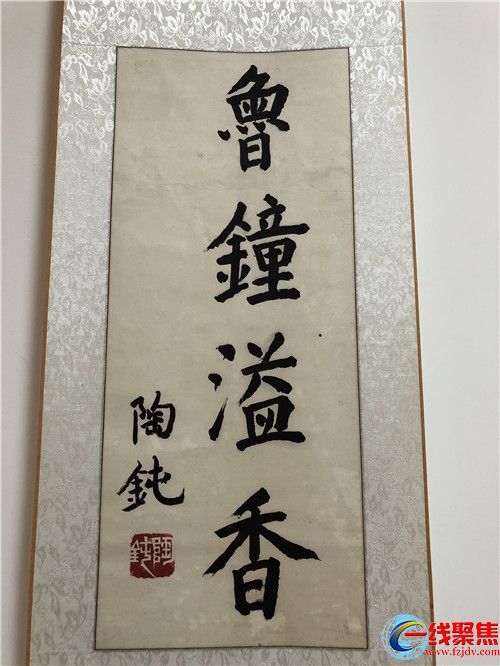 魯鐘溢香
陶鈍
陶鈍
一线聚焦
www.fzjdv.com